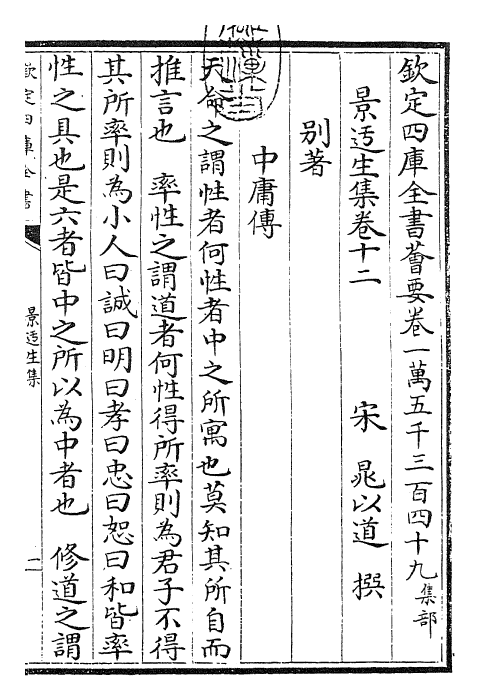 欽定四庫全書薈要卷一萬五千三百四十九集部
景迃生集卷十二　宋　晁以道　撰
别著
中庸傳
天命之謂性者何性者中之所寓也莫知其所自而
推言也　率性之謂道者何性得所率則為君子不得
其所率則為小人曰誠曰明曰孝曰忠曰恕曰和皆率
性之具也是六者皆中之所以為中者也　修道之謂
欽定四庫全書
景迃生集
一